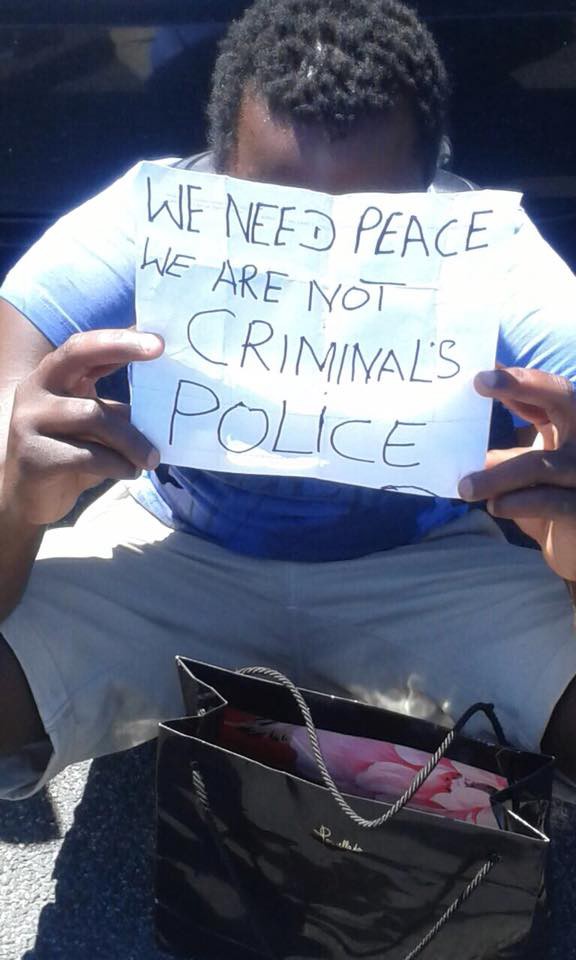 WE NEED PEACE
WE ARE NOT
CRIMINAL'S
POLICE